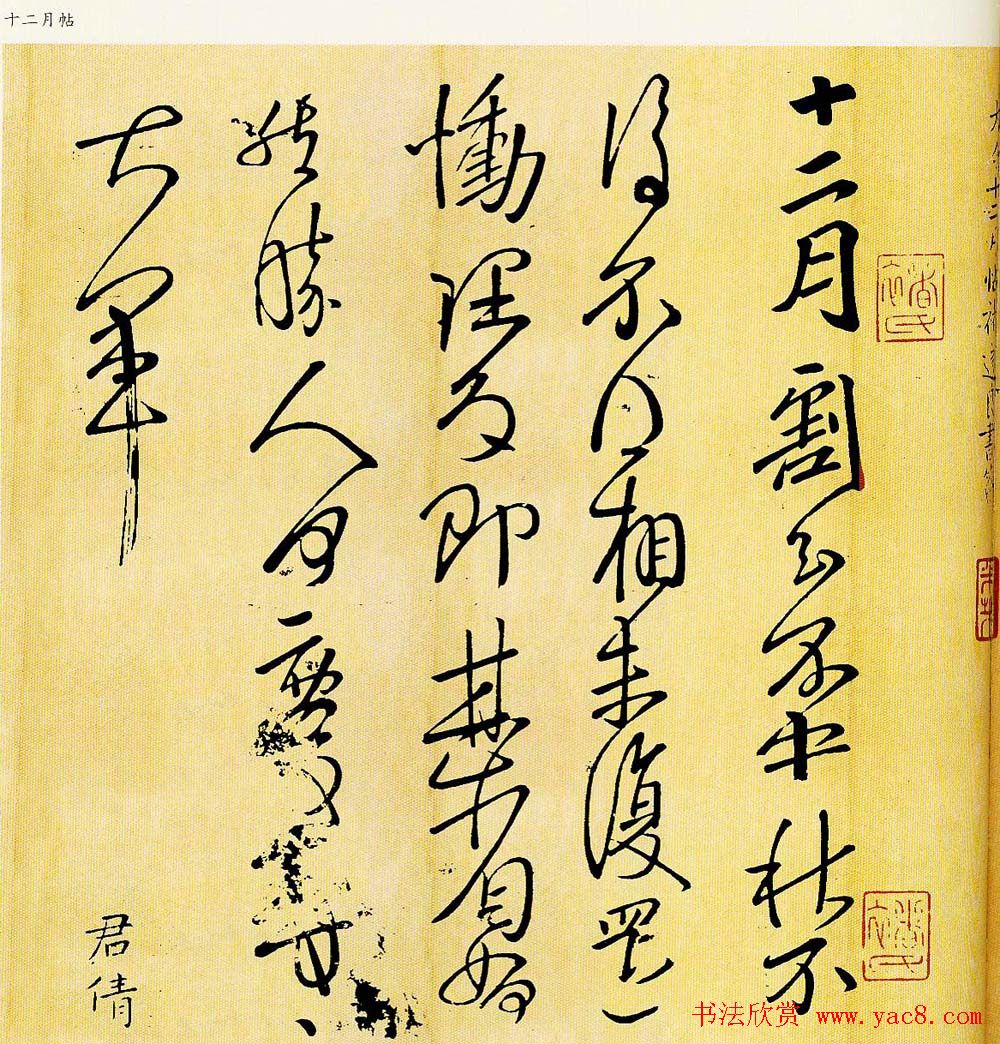 十二月帖
十二月割至不中秋不
復不得相未復還
慟理為即甚省如何
然勝人何慶等
大軍
君倩
书法欣赏 www.yac8.com